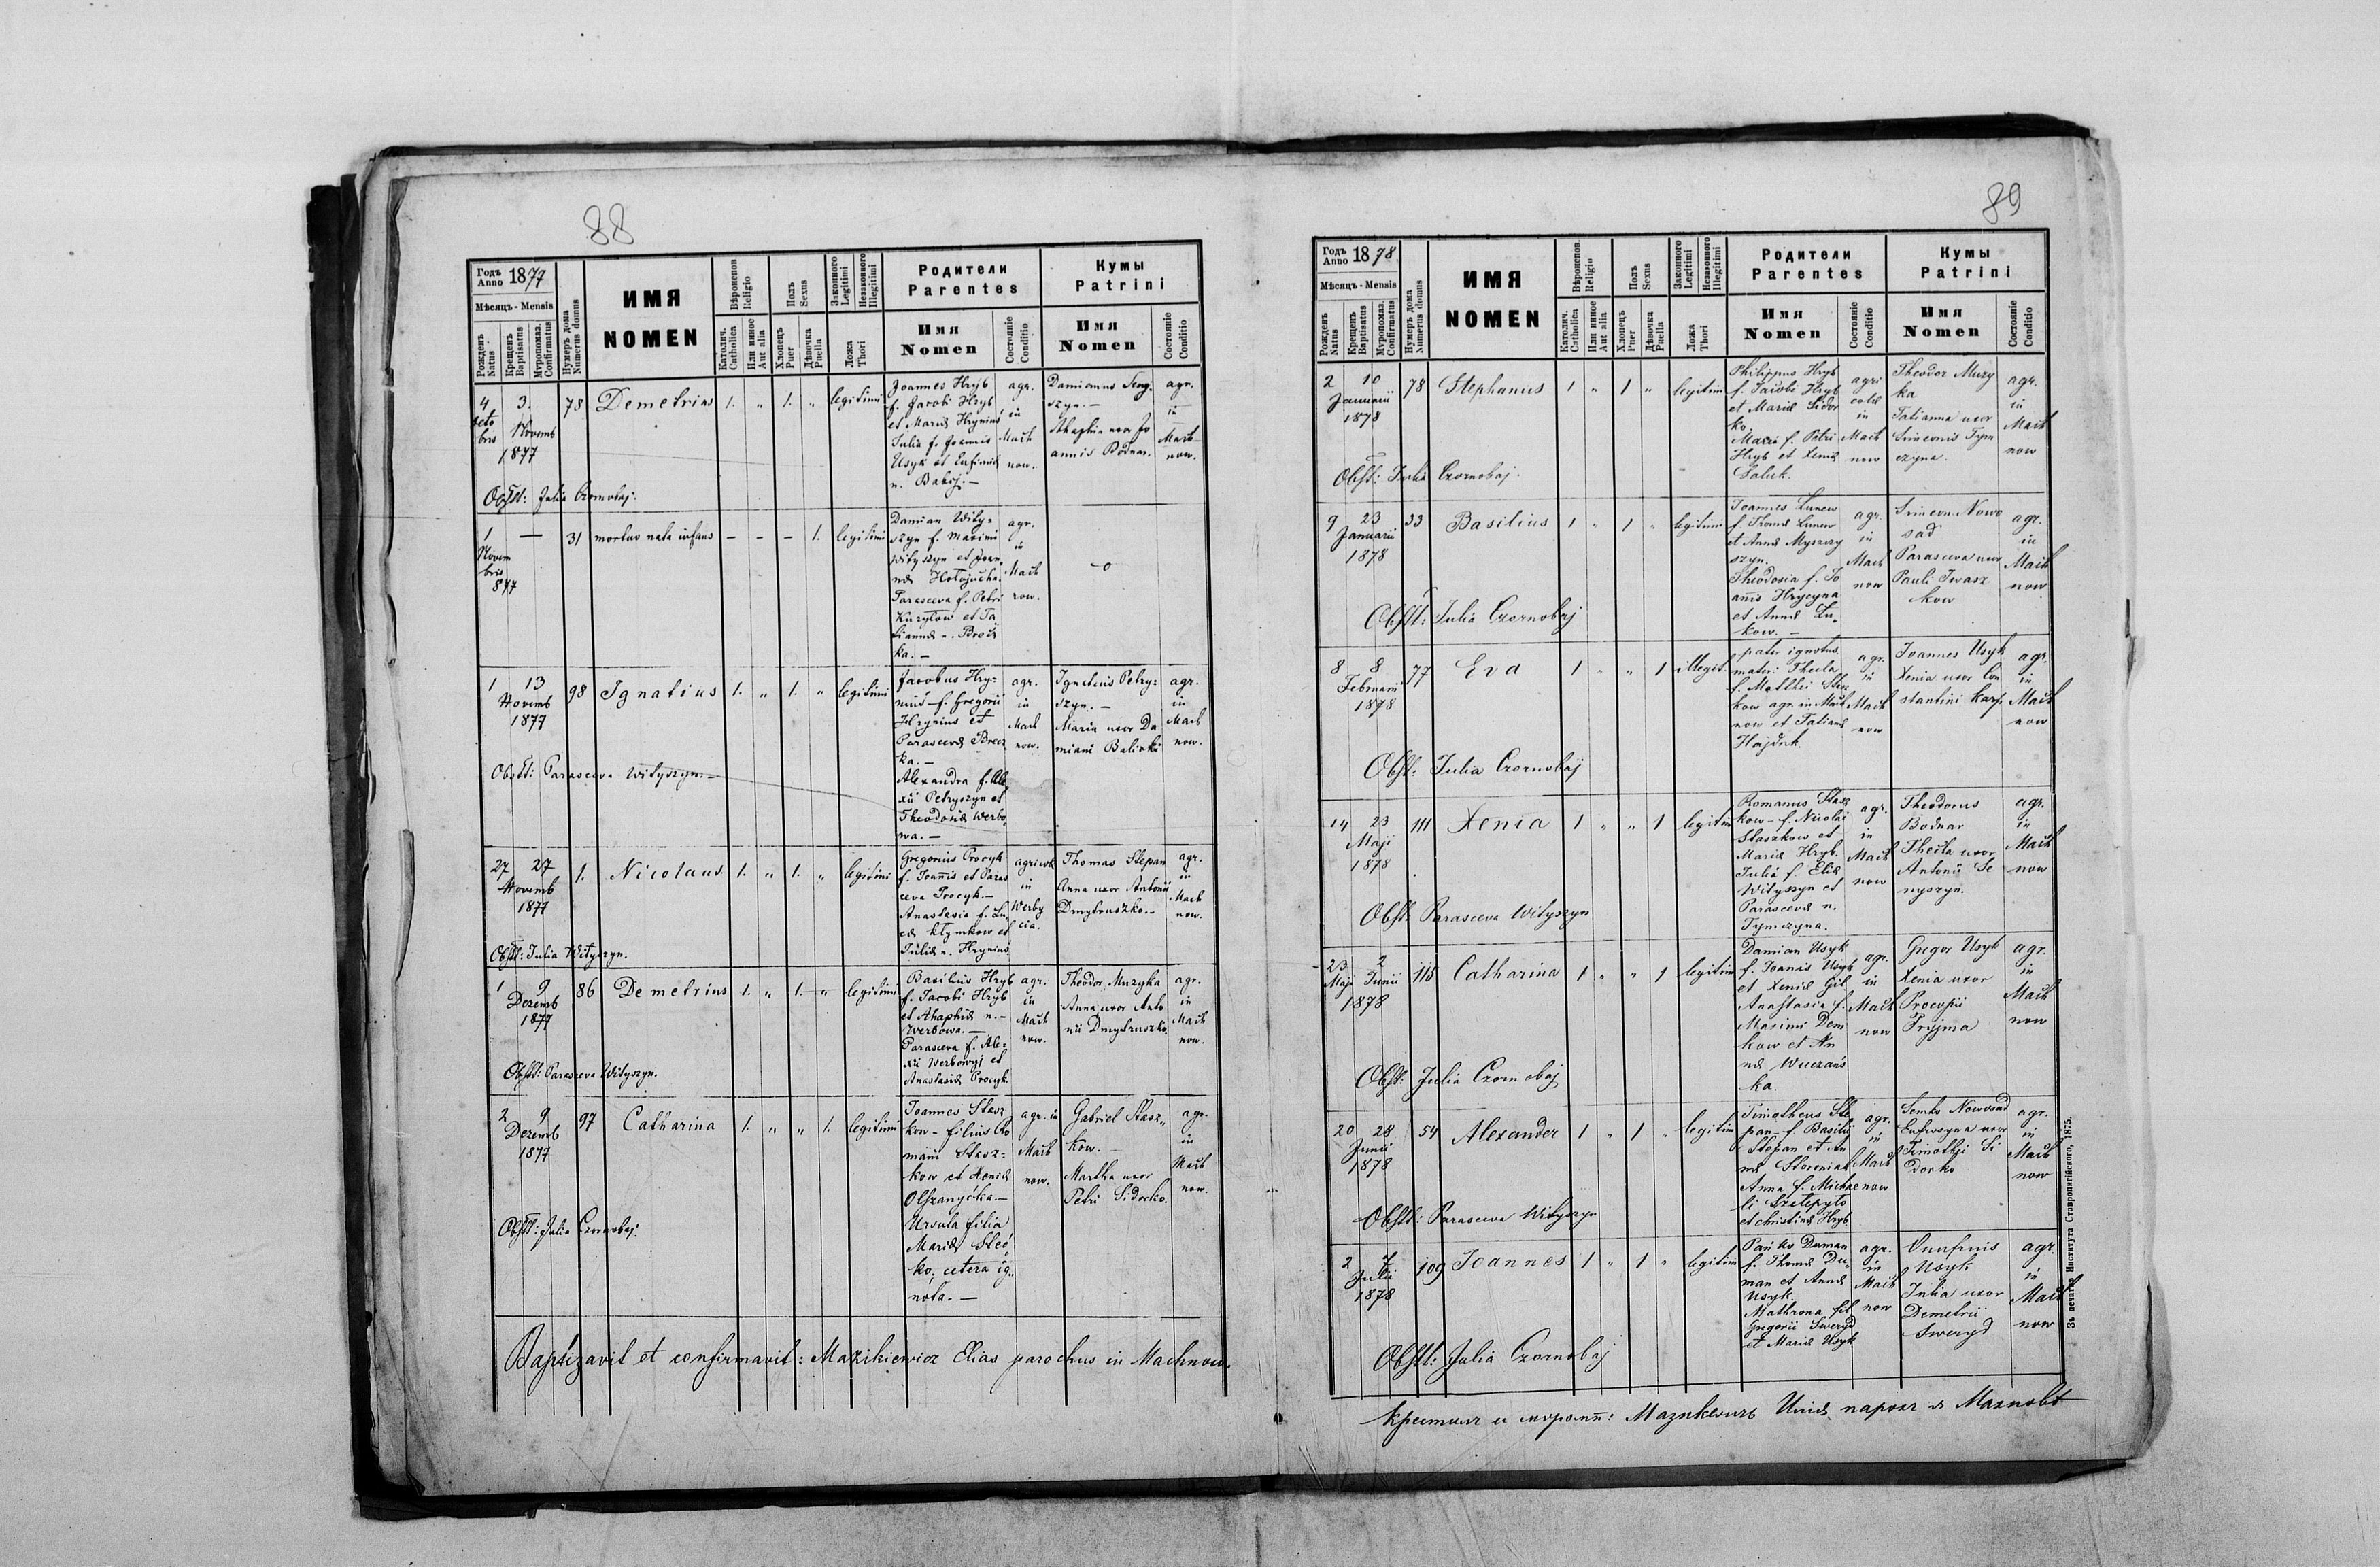 88
Годъ Anno 1877
Мѣсяцъ - Mensis
Рожденъ Natus
Крещенъ Baptisatus
Муропомаз. Confirmatus
Нумеръ дома Numerus domus
ИМЯ
NOMEN
Вѣроисповѣд. Religio
Католич. Catholica
Или инное Aut alia
Полъ Sexus
Хлопецъ Puer
Дѣвочка Puella
Законного Legitimi
Незаконного Illegitimi
Ложа Thori
Родители
Parentes
Имя
Nomen
Состояніе Conditio
Кумы
Patrini
Имя
Nomen
Состояніе Conditio
4 Octobris 3. Novemb 1877
78 Demetrius 1. „ 1. „ legitimi
Joannes Hryb
f. Jacobi Hryb
et Mariæ Hrynius
Julia f. Joannis
Usyk et Eufimiæ
n. Babij. —
agr. in Machnow.
Damianus
Ahaphia uxor Jo
annis Bodnar.
agr. in Machnow.
Obstt: Julia Czornobaj.
1 Novembris 877 —
31 mortuo nata infans — — — 1. legitimi
Damian Wity-
szyn f. Maximi
Wityszyn et Joan-
næ
Parasceva f. Petri
Kuryłow et Ta
tiannæ n.
ka. —
agr. in Machnow.
—o
1 13 Novemb 1877
98 Ignatius 1. „ 1. „ legitimi
Jacobus Hry-
nius f. Gregorii
Hrynius et
Parascevæ
ka. —
Alexandra f. Ale
xii Petryszyn et
Theodosiæ Werbo
wa. —
agr. in Machnow.
Ignatius Petry-
szyn. —
Maria uxor Da
miani
agr. in Machnow.
Obstt: Parasceva Wityszyn. —
27 27 Novemb 1877
1. Nicolaus 1. „ 1. „ legitimi
Gregorius Procyk
f. Joannis et Paras
cevæ Procyk. —
Anastasia f. Lu
cæ Kłymkow et
Juliæ n. Hrynius
agricola in Werbycia.
Thomas Stepan
Anna uxor Antonii
Dmytruszko. —
agr. in Machnow.
Obstt: Julia Wityszyn.
1 9 Dezemb 1877
86 Demetrius 1. „ 1. „ legitimi
Basilius Hryb
f. Jacobi Hryb
et Ahaphiæ n. —
Werbowa. —
Parasceva f. Ale-
xii Werbowyj et
Anastasiæ Procyk.
agr. in Machnow.
Theodor Muzyka
Anna uxor Anto
nii Dmytruszko.
agr. in Machnow.
Obstt: Parasceva Wityszyn.
2 9 Dezemb 1877
97 Catharina 1. „ „ 1. legitimi
Joannes Stasz
kow — filius Ro
mani Stasz-
kow et Xeniæ
—
Ursula filia
Mariæ Steć
ko, cetera ig-
nota. —
agr. in Machnow.
Gabriel Stasz-
kow. —
Martha uxor
Petri Sidorko.
agr. in Machnow.
Obstt: Julia Czornobaj.
Baptizavit et confirmavit: Mazikiewicz Elias parochus in Machnow.
89
Годъ Anno 1878
Мѣсяцъ - Mensis
Рожденъ Natus
Крещенъ Baptisatus
Муропомаз. Confirmatus
Нумеръ дома Numerus domus
ИМЯ
NOMEN
Вѣроисповѣд. Religio
Католич. Catholica
Или инное Aut alia
Полъ Sexus
Хлопецъ Puer
Дѣвочка Puella
Законного Legitimi
Незаконного Illegitimi
Ложа Thori
Родители
Parentes
Имя
Nomen
Состояніе Conditio
Кумы
Patrini
Имя
Nomen
Состояніе Conditio
2 10 Januarii 1878
78 Stephanus 1 „ 1 „ legitimi
Philippus Hryb
f. Jacobi Hryb
et Mariæ Sidor
ko.
Maria f. Petri
Hryb et Xeniæ
agricolæ in Machnow
Theodor Muzy
ka
Tatianna uxor
Simeonis Tym
czyna.
agr. in Machnow
Obstt: Julia Czornobaj.
9 23 Januarii 1878
33 Basilius 1 „ 1 „ legitimi
Joannes Lunew
f. Thomæ Lunew
et Annæ Myszczy
szyn.
Theodosia f. Jo
annis Hrycyna
et Annæ Lu-
kow. —
agr. in Machnow
Simeon Nowo
sad
Parasceva uxor
Pauli Iwasz
kow
agr. in Machnow
Obstt: Julia Czornobaj
8 8 Februarii 1878
77 Eva 1 „ „ 1 illegit.
pater ignotus
mater: Thecla
f. Matthei Stasz
kow agr. in Mach
now et Tatianæ
Hajduk.
agr. in Machnow
Joannes Usyk
Xenia uxor Con
stantini Karp.
agr. in Machnow
Obstt: Julia Czornobaj
14 23 Maji 1878
111 Xenia 1 „ „ 1 legitim
Romanus Stasz
kow — f. Nicolai
Staszkow et
Mariæ Hryb.
Julia f. Eliæ
Wityszyn et
Parascevæ n.
Tymczyna.
agr. in Machnow
Theodorus
Bodnar
Thecla uxor
Antonii Se
nyszyn.
agr. in Machnow
Obstt. Parasceva Wityszyn
23 Maji 2 Junii 1878
115 Catharina 1 „ „ 1 legitim
Damian Usyk
f. Joannis Usyk
et Xeniæ Gil
Anastasia f.
Maximi Dem
kow et An
næ Wuczańs
ka.
agr. in Machnow
Gregor Usyk
Xenia uxor
Procopii
Pryjma
agr. in Machnow
Obstt: Julia Czornobaj
20 28 Junii 1878
54 Alexander 1 „ 1 „ legitim
Timotheus Ste
pan — f. Basilii
Stepan et An
næ
Anna f. Michae
li Szełepyło
et Christinæ Hryb
agr. in Machnow
Semko Nowosad
Eufrosyna uxor
Timothei Si
dorko
agr. in Machnow
Obstt: Parasceva Wityszyn
2 7 Julii 1878
109 Joannes 1 „ 1 „ legitim
Pańko Duman
f. Thomæ Du-
man et Annæ
Usyk.
Mathrona fil
Gregorii Sweryd
et Mariæ Usyk
agr. in Machnow
Onufrius
Usyk
Julia uxor
Demetrii
Sweryd
agr. in Machnow
Obstt: Julia Czornobaj
Зъ печатнѣ Института Ставропигійского, 1875.
Крестилъ и муропп: Мазикевичъ Илія парохъ в Махновѣ